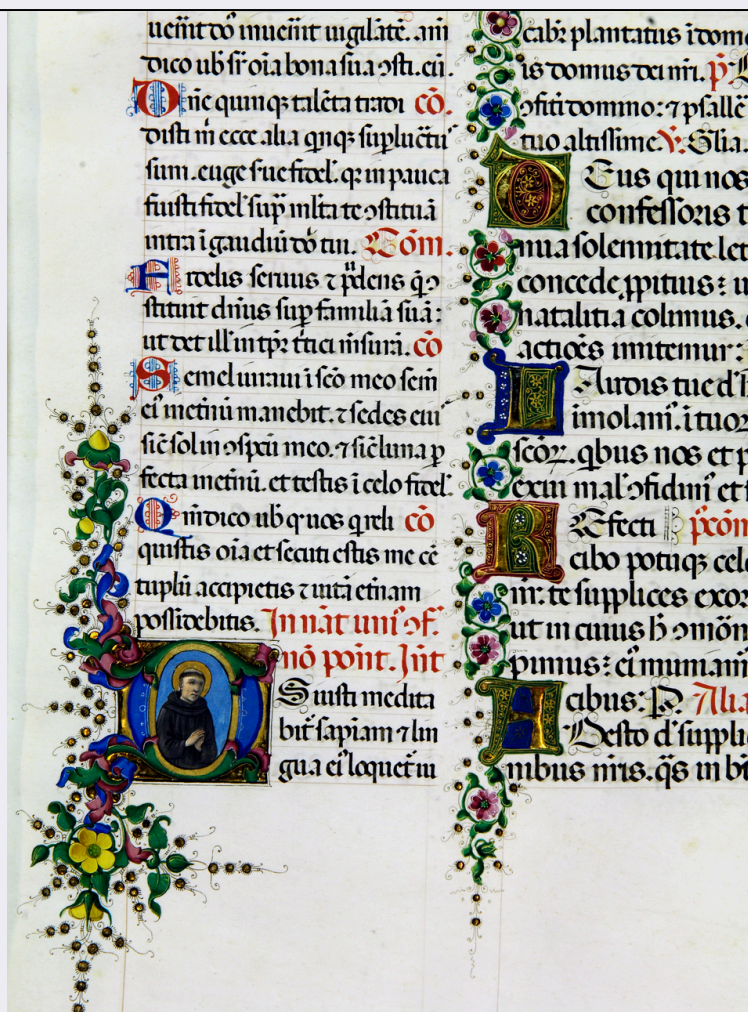 uenit do᷑ inuenit uigilãte. am̄
dico uob̄ sr̄ oĩa bona sua ↄsti. eũ.
Dñe quinqꝫ talẽta tradi cõ.
disti m̄ ecce alia qnqꝫ suꝑlucr̃tu᷑
sum. euge ſue fidel᷑. qꝛ in pauca
fuisti fidel᷑ suꝑ ml̃ta te ↄstituã
intra ĩ gaudiũ dõ tui. Com̃.
Fidelis seruus ⁊ pr̃dens q̃ ↄ
stituit dñus suꝑ familiã suã:
ut det ill᷑ in tp̃ꝛ tr̃tici m̃surã. cõ
Semel iuraui ĩ scõ meo sem̃
ei᷑ metñũ manebit. ⁊ sedes eiu᷑
sic̃ sol in ↄspc̃u meo. ⁊ sic̃ luna ꝑ
fecta metñũ. et testis ĩ celo fidel᷑.
Qm̃ dico uob̄ q᷑ uos q reli cõ
quistis oĩa et secuti estis me cẽ
tuplũ accipietis ⁊ uitã etñam
possidebitis. In nat̃ uni᷑ ↄf.
nõ põt. Int̃
Os iusti medita
bit᷑ sapiam̃ ⁊ lin
gua ei᷑ loquet᷑ iu
cabꝛ plantatus ĩ dom
is domus dei nr̃i. p̃.
ↄfiteri domino: ⁊ psallẽ
tuo altissime. ℣. Glia.
Deus qui nos
confessoris t
nua solemnitate let
concede ꝓpitius: u
natalitia colimus.
actiões imitemur:
Laudis tue d᷑
imolam᷑. ĩ tuoꝛ
scõꝝ. qbus nos et p
exui mal᷑ ↄfidim᷑ et
Refecti p̃com̃
cibo potuqꝫ cele
nr̃. te supplices exor
ut in cuius h̄ ↄmõn
pimus: ei᷑ muniam᷑
cibus: P. Alia
Adesto d᷑ suppli
nibus nr̃is. q̃s in b